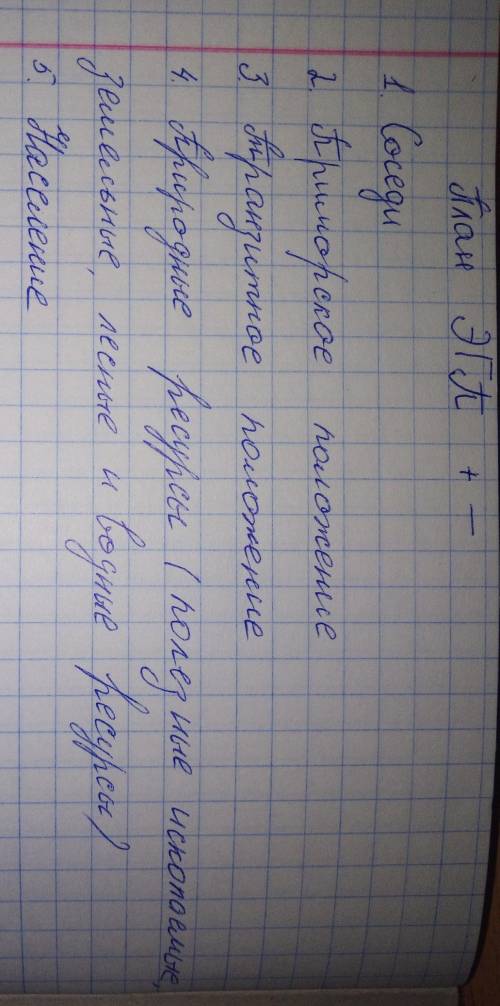 План ЭГП + –
1. Соседи
2. Приморское положение
3. Транзитное положение
4. Природные ресурсы (полезные ископаемые,
земельные, лесные и водные ресурсы)
5. Население